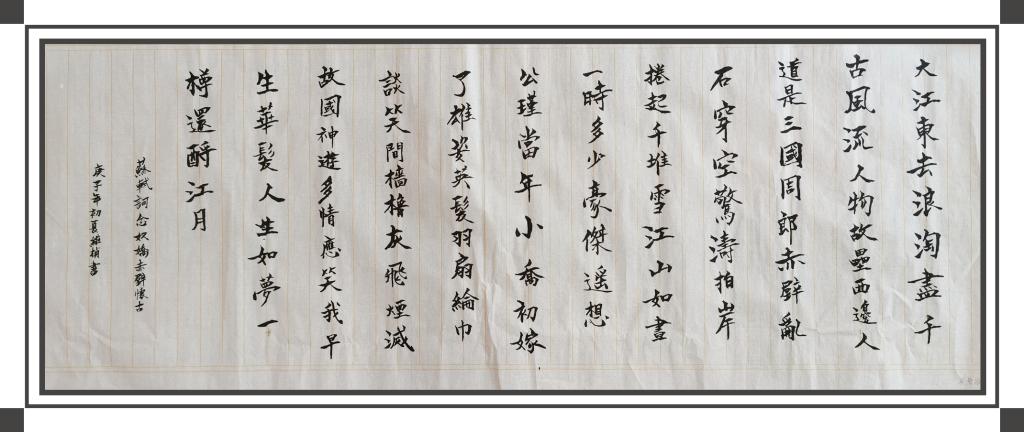 大江東去浪淘盡千
古風流人物故壘西邊人
道是三國周郎赤壁亂
石穿空驚濤拍岸
捲起千堆雪江山如畫
一時多少豪傑遥想
公瑾當年小喬初嫁
了雄姿英髮羽扇綸巾
談笑間檣櫓灰飛煙滅
故國神遊多情應笑我早
生華髪人生如夢一
樽還酹江月
蘇軾詞念奴嬌赤壁懷古
庚子年初夏維楨書